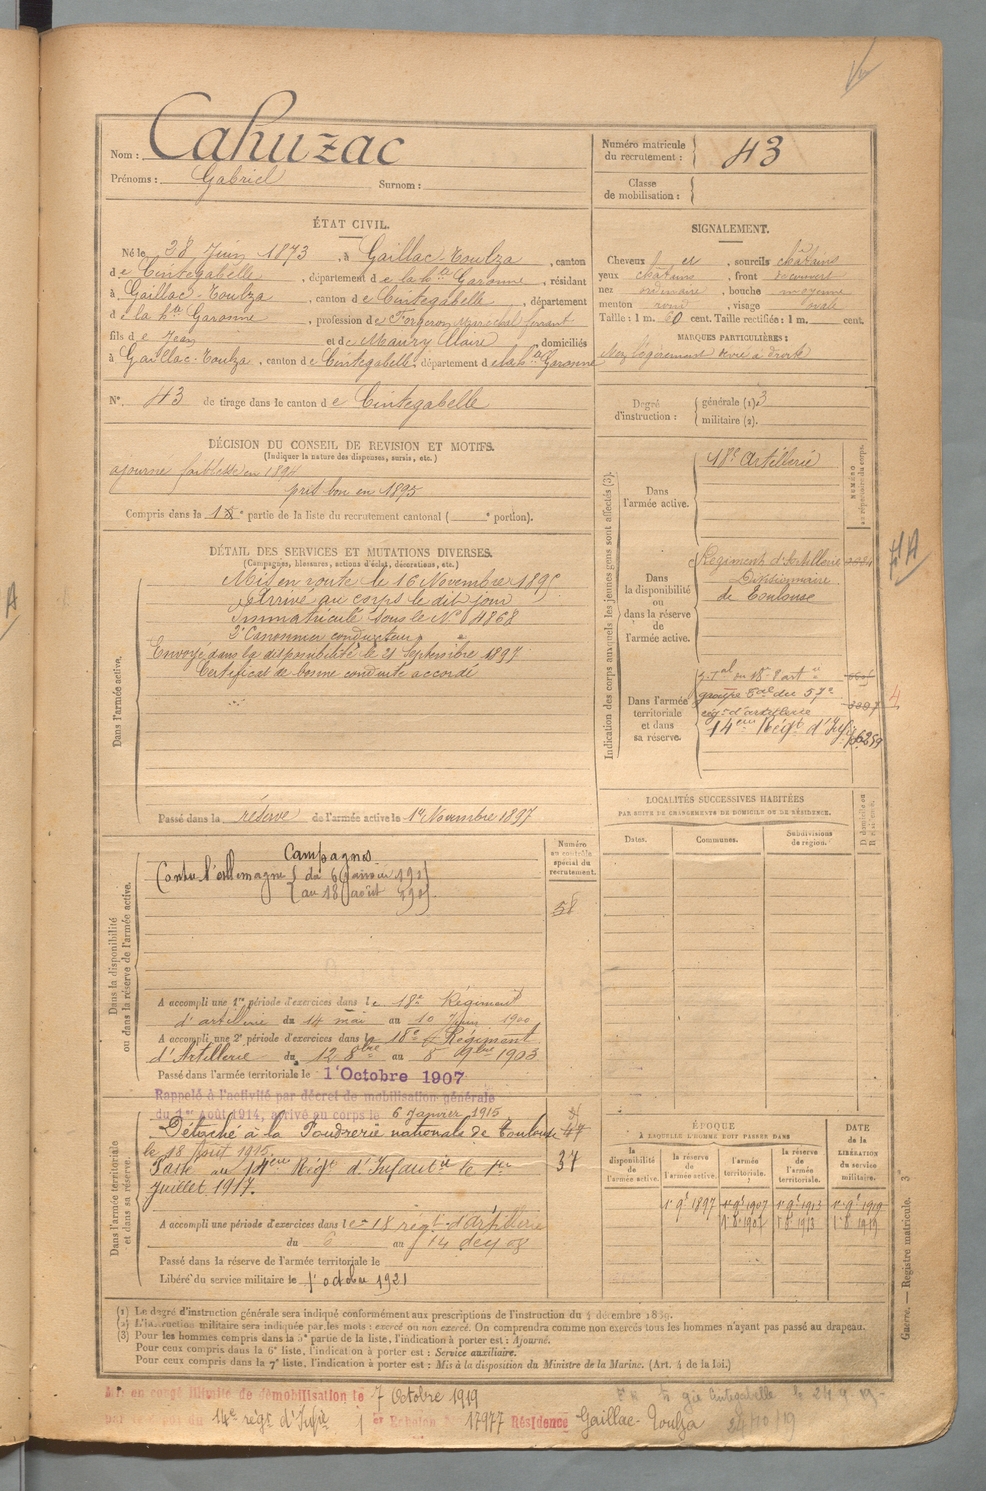 Nom : Cahuzac
Prénoms : Gabriel Surnom :
Numéro matricule du recrutement : 43
Classe de mobilisation :
ÉTAT CIVIL.
Né le 28 Juin 1873, à Gaillac-Toulza, canton
de Cintegabelle, département de la hte Garonne, résidant
à Gaillac-Toulza, canton de Cintegabelle, département
de la hte Garonne, profession de Forgeron Maréchal ferrant
fils de Jean et de Maury Claire, domiciliés
à Gaillac-Toulza, canton de Cintegabelle, département de la hte Garonne
N° 43 de tirage dans le canton de Cintegabelle
SIGNALEMENT.
Cheveux et, sourcils châtains
yeux châtains, front découvert
nez ordinaire, bouche moyenne
menton rond, visage ovale
Taille : 1 m. 60 cent. Taille rectifiée : 1 m. cent.
MARQUES PARTICULIÈRES :
Nez légèrement à droite
Degré d'instruction : générale (1) 3
militaire (2).
DÉCISION DU CONSEIL DE REVISION ET MOTIFS.
(Indiquer la nature des dispenses, sursis, etc.)
ajourné faiblesse en 1894
pris bon en 1895
Compris dans la 1e partie de la liste du recrutement cantonal ( e portion).
DÉTAIL DES SERVICES ET MUTATIONS DIVERSES.
(Campagnes, blessures, actions d'éclat, décorations, etc.)
Dans l'armée active.
Mis en route le 16 Novembre 1895
Arrivé au corps le dit jour
Immatriculé sous le N° 4868
2e Canonnier conducteur
Envoyé dans la disponibilité le 21 Septembre 1897
Certificat de bonne conduite accordé
Passé dans la réserve de l'armée active le 1er Novembre 1897
Indication des corps auxquels les jeunes gens sont affectés (3).
NUMÉRO au répertoire du corps.
Dans l'armée active.
18e Artillerie
Dans la disponibilité ou dans la réserve de l'armée active.
Régiment d'Artillerie
Divisionnaire
de Toulouse
A
Dans l'armée territoriale et dans sa réserve.
groupe du 57e
d'artillerie
14eme Régt d'Infie 6259
4
LOCALITÉS SUCCESSIVES HABITÉES
PAR SUITE DE CHANGEMENTS DE DOMICILE OU DE RÉSIDENCE.
Dates. Communes. Subdivisions de région. D domicile ou R résidence.
Dans la disponibilité ou dans la réserve de l'armée active.
Numéro au contrôle spécial du recrutement.
58
Campagnes
Contre l'Allemagne du 6 janvier 191
au 18 août 191
A accompli une 1re période d'exercices dans le 18e Régiment
d'artillerie du 14 mai au 10 Juin 1900
A accompli une 2e période d'exercices dans le 18e Régiment
d'Artillerie du 12 8bre au 8 9bre 1903
Passé dans l'armée territoriale le 1er Octobre 1907
Dans l'armée territoriale et dans sa réserve.
Rappelé à l'activité par décret de mobilisation générale
du 1er Août 1914, arrivé au corps le 6 Janvier 1915
Détaché à la Poudrerie nationale de Toulouse
le 18 Août 1915.
Passé au 14eme Régt d'Infanterie le 1er
Juillet 1917.
37
A accompli une période d'exercices dans le 18 régt d'Artillerie
du 6 au 14
Passé dans la réserve de l'armée territoriale le
Libéré du service militaire le 1er octobre 1921
ÉPOQUE
A LAQUELLE L'HOMME DOIT PASSER DANS
la disponibilité de l'armée active. la réserve de l'armée active. l'armée territoriale. la réserve de l'armée territoriale.
DATE de la LIBÉRATION du service militaire.
1er 9e 1897 1er 9e 1907 1er 9e 1913 1er 9e 1919
(1) Le degré d'instruction générale sera indiqué conformément aux prescriptions de l'instruction du 4 décembre 1889.
(2) L'instruction militaire sera indiquée par les mots : exercé ou non exercé. On comprendra comme non exercés tous les hommes n'ayant pas passé au drapeau.
(3) Pour les hommes compris dans la 5e partie de la liste, l'indication à porter est : Ajourné.
Pour ceux compris dans la 6e liste, l'indication à porter est : Service auxiliaire.
Pour ceux compris dans la 7e liste, l'indication à porter est : Mis à la disposition du Ministre de la Marine. (Art. 4 de la loi.)
Guerre. — Registre matricule. 3
Mis en congé illimité de démobilisation le 7 Octobre 1919
par le dépôt du 14e régt d'Infie 1er Echelon N° 17977 Résidence Gaillac-Toulza
Cintegabelle le 24 9 19